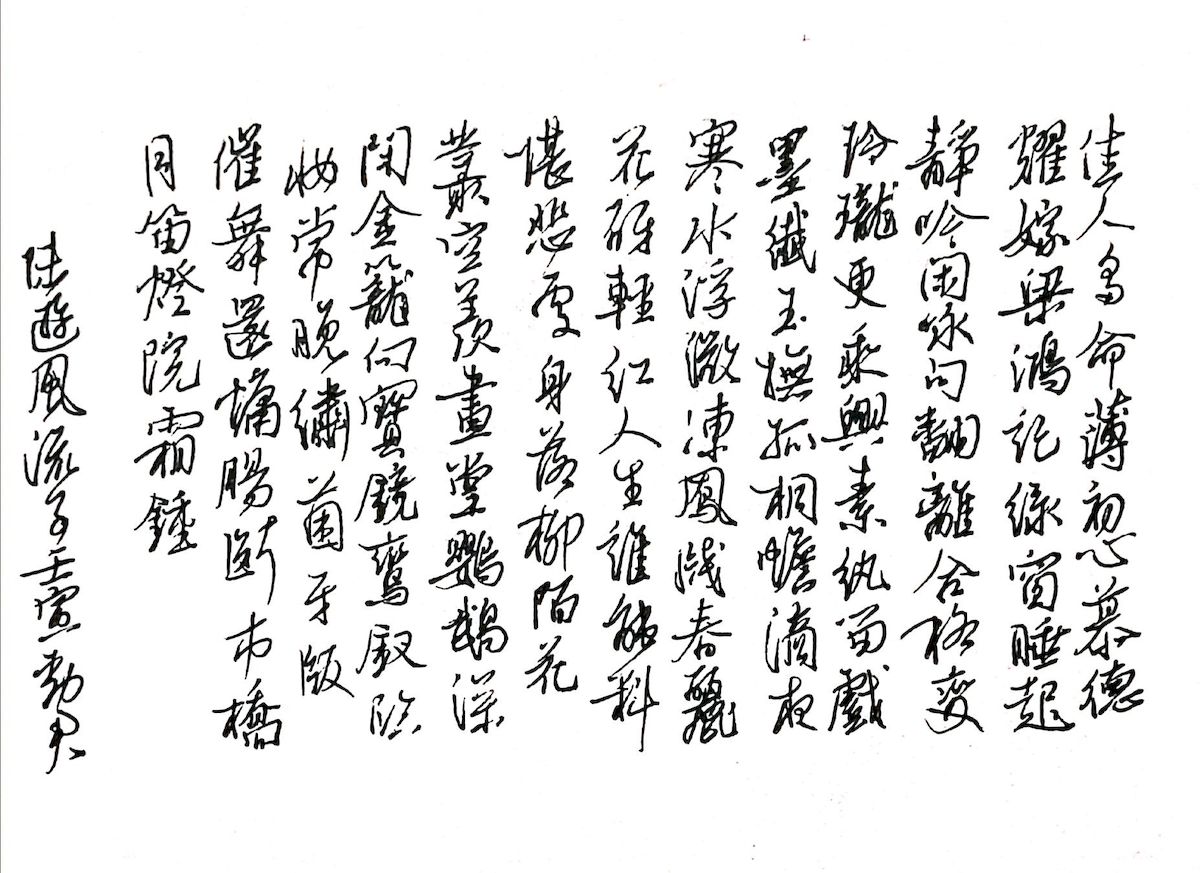 佳人多命薄初心慕德
耀嫁梁鴻記綠窗睡起
靜吟閑詠句翻離合格變
玲瓏更乘興素紈留戲
墨纖玉撫孤桐蟾滴夜
寒水浮微凍鳳牋春麗
花砑輕紅人生誰能料
堪悲處身落柳陌花
叢空羨畫堂鸚鵡深
閉金籠向寶鏡鸞釵臨
妝常晚繡茵牙版
催舞還慵腸斷市橋
月笛燈院霜鍾
陸遊風流子壬寅